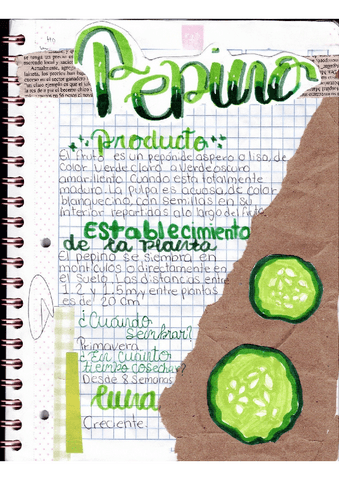 Pepino
Producto
El fruto es un pepónide áspero o liso, de
color verde claro a verde oscuro
amarillento cuando está totalmente
maduro. La pulpa es acuosa, de color
blanquecino, con semillas en su
interior repartidas a lo largo del fruto.
Establecimiento
de la planta
El pepino se siembra en
montículos o directamente en
el suelo. Las distancias entre
1.2 y 1.5m, y entre plantas
es de 20 cm
¿Cuándo
sembrar?
Primavera
¿En cuánto
tiempo cosechar?
Desde 8 semanas
luna
Creciente